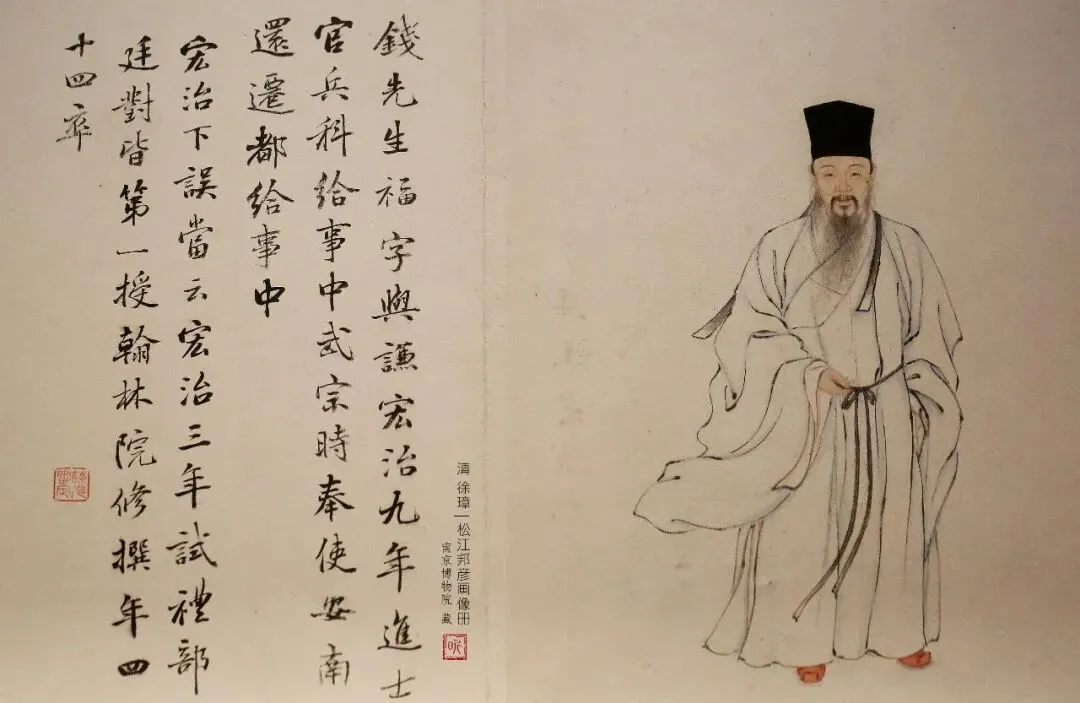 錢先生福字與謙宏治九年進士
官兵科給事中武宗時奉使安南
還遷都給事中
宏治下誤當云宏治三年試禮部
廷對皆第一授翰林院修撰年四
十四卒
清 徐璋|松江邦彦画像册
南京博物院 藏